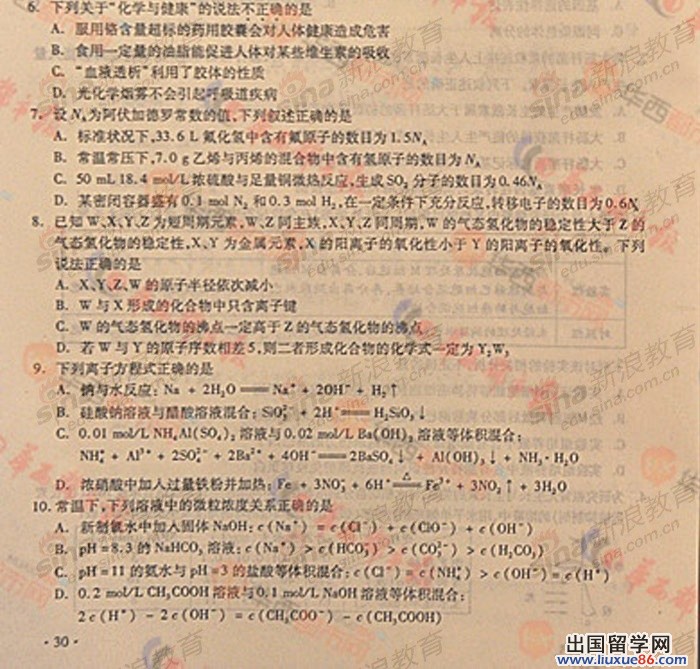 6. 下列关于"化学与健康"的说法不正确的是
A. 服用铬含量超标的药用胶囊会对人体健康造成危害
B. 食用一定量的油脂能促进人体对某些维生素的吸收
C. "血液透析"利用了胶体的性质
D. 光化学烟雾不会引起呼吸道疾病
7. 设NA为阿伏加德罗常数的值,下列叙述正确的是
A. 标准状况下,33.6 L 氟化氢中含有氟原子的数目为1.5NA
B. 常温常压下,7.0 g 乙烯与丙烯的混合物中含有氢原子的数目为NA
C. 50 mL 18.4 mol/L 浓硫酸与足量铜微热反应,生成SO2 分子的数目为0.46NA
D. 某密闭容器盛有0.1 mol N2 和0.3 mol H2,在一定条件下充分反应,转移电子的数目为0.6NA
8. 已知 W、X、Y、Z 为短周期元素,W、Z 同主族,X、Y、Z 同周期,W 的气态氢化物的稳定性大于 Z 的
气态氢化物的稳定性,X、Y 为金属元素,X 的阳离子的氧化性小于 Y 的阳离子的氧化性。下列
说法正确的是
A. X、Y、Z、W 的原子半径依次减小
B. W 与 X 形成的化合物中只含离子键
C. W 的气态氢化物的沸点一定高于 Z 的气态氢化物的沸点
D. 若 W 与 Y 的原子序数相差5,则二者形成化合物的化学式一定为 Y2W3
9. 下列离子方程式正确的是
A. 钠与水反应: Na + 2H2O ═ Na+ + 2OH- + H2↑
B. 硅酸钠溶液与醋酸溶液混合: SiO3^2- + 2H+ ═ H2SiO3↓
C. 0.01 mol/L NH4Al(SO4)2 溶液与0.02 mol/L Ba(OH)2 溶液等体积混合:
NH4+ + Al3+ + 2SO4^2- + 2Ba2+ + 4OH- ═ 2BaSO4↓ + Al(OH)3↓ + NH3·H2O
D. 浓硝酸中加入过量铁粉并加热: Fe + 3NO3- + 6H+ ═△═ Fe3+ + 3NO2↑ + 3H2O
10. 常温下,下列溶液中的微粒浓度关系正确的是
A. 新制氯水中加入固体 NaOH: c(Na+) = c(Cl-) + c(ClO-) + c(OH-)
B. pH = 8.3 的 NaHCO3 溶液: c(Na+) > c(HCO3-) > c(CO3^2-) > c(H2CO3)
C. pH = 11 的氨水与 pH = 3 的盐酸等体积混合: c(Cl-) = c(NH4+) > c(OH-) = c(H+)
D. 0.2 mol/L CH3COOH 溶液与0.1 mol/L NaOH 溶液等体积混合:
2c(H+) - 2c(OH-) = c(CH3COO-) - c(CH3COOH)
· 30 ·
sina 新浪教育
edu.sina.com.cn
出国留学网
www.liuxue86.com